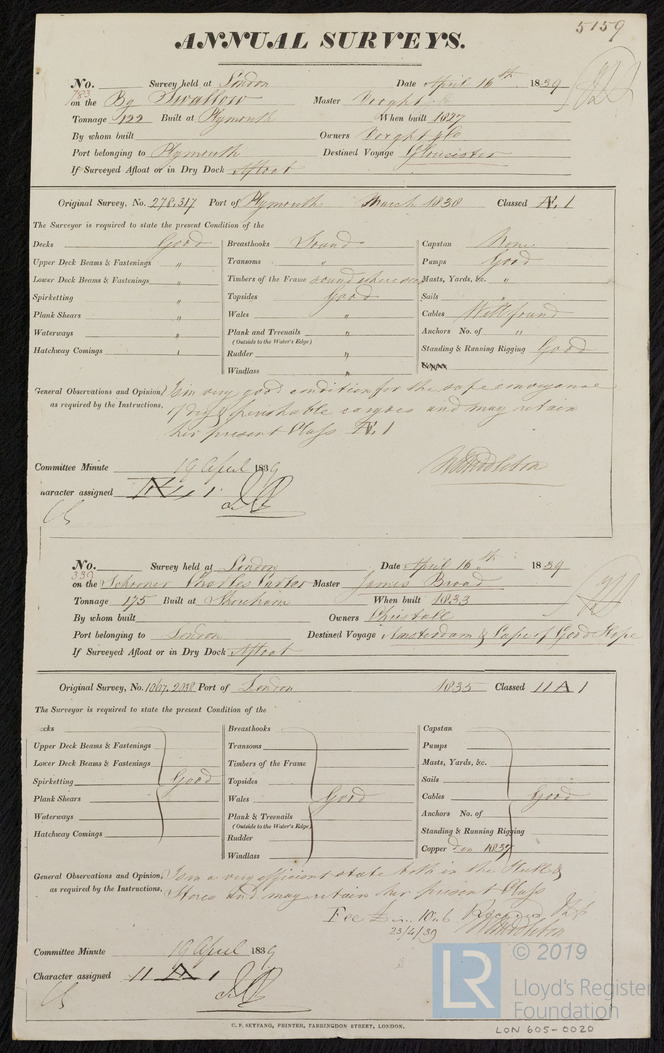 5159
ANNUAL SURVEYS.
No. 783 Survey held at London Date April 16th 1839
on the Bg Swallow Master Voight
Tonnage 122 Built at Plymouth When built 1827
By whom built Owners Voight & Co
Port belonging to Plymouth Destined Voyage Gloucester
If Surveyed Afloat or in Dry Dock Afloat
Original Survey, No. 278.317 Port of Plymouth March 1838 Classed Æ 1
The Surveyor is required to state the present Condition of the
Decks Good Breasthooks Sound Capstan None
Upper Deck Beams & Fastenings " Transoms " Pumps Good
Lower Deck Beams & Fastenings " Timbers of the Frame sound where seen Masts, Yards, &c. "
Spirketting " Topsides good Sails "
Plank Shears " Wales " Cables Well found
Waterways " Plank and Treenails " Anchors No. of "
(Outside to the Water's Edge)
Hatchway Comings " Rudder " Standing & Running Rigging Good
Windlass "
General Observations and Opinion, Is in very good condition for the safe conveyance
as required by the Instructions. of dry & perishable cargoes and may retain
her present Class Æ 1
Committee Minute 19 April 1839
Character assigned Æ 1
No. 330 Survey held at London Date April 16th 1839
on the Schooner Charles Carter Master James Broad
Tonnage 175 Built at Shoreham When built 1833
By whom built Owners Chrystall
Port belonging to London Destined Voyage Amsterdam & Cape of Good Hope
If Surveyed Afloat or in Dry Dock Afloat
Original Survey, No. 1067.2038 Port of London 1835 Classed 11 A 1
The Surveyor is required to state the present Condition of the
Decks Breasthooks Capstan
Upper Deck Beams & Fastenings Transoms Pumps
Lower Deck Beams & Fastenings Timbers of the Frame Masts, Yards, &c.
Spirketting Good Topsides Sails
Plank Shears Wales Good Cables Good
Waterways Plank & Treenails Anchors No. of
(Outside to the Water's Edge)
Hatchway Comings Rudder Standing & Running Rigging
Windlass Copper 1837
General Observations and Opinion, Is in a very efficient state both in the Hull &
as required by the Instructions. Stores and may retain her present Class
Fee £ 10.6 Received
23/4/39 Middleton
Committee Minute 19 April 1839
Character assigned 11 A 1
C. F. SEYFANG, PRINTER, FARRINGDON STREET, LONDON.
LR
© 2019
Lloyd's Register
Foundation
LON 605-0020